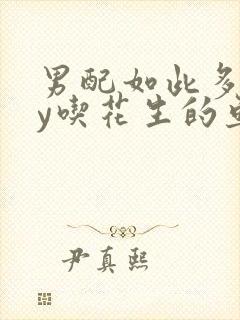 男配如此多
y喫花生的
尹真熙